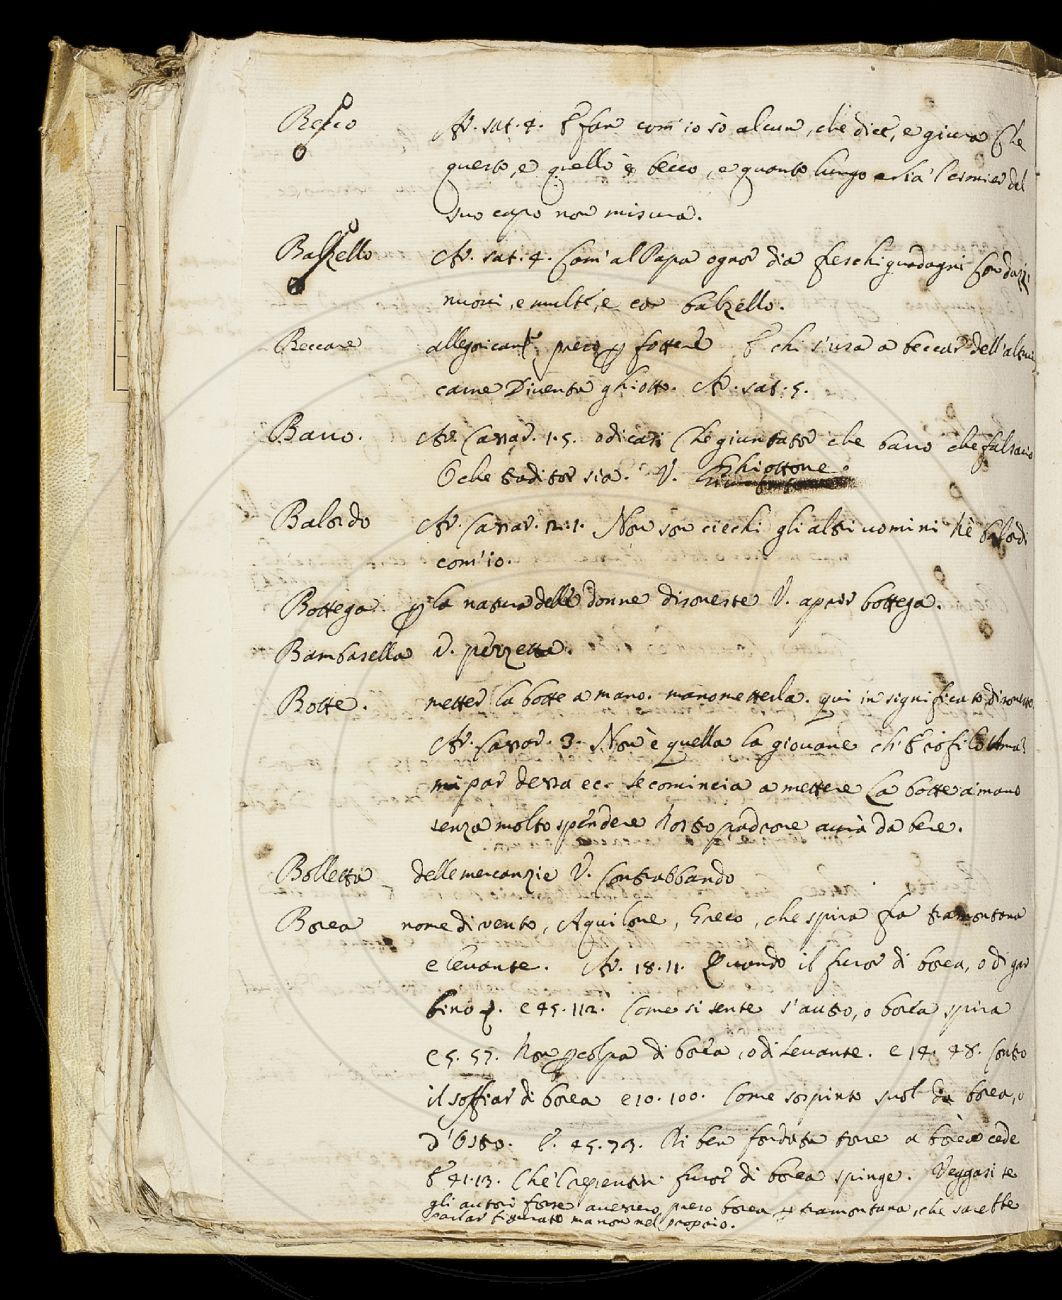 Becco Ar. sat. 4. E far com' io sò alcun, che dice, e giura che
questo, e quello è becco, e quanto lungo sia l cimier del
suo capo non misura.
Balzello Ar. sat. 4. Com' al Papa ognor dia freschi guadagni con dazi
nuovi, e multe, e con balzello.
Beccare preso fottere E chi s'usa a beccar dell'altrui
carne Diventa ghiotto. Ar. sat. 5.
Baro. Ar. Cassar. 1. 5. o dicasi che giuntator che baro che falsario
O che traditor sia. V. Ghiottone.
Balordo Ar. Cassar. 2. 1. Non son ciechi gli altri uomini nè balordi
com' io.
Bottega. p la natura delle donne disoneste V. aprir bottega.
Bambasella V. pezzetta.
Botte. metter la botte a mano. manometterla. qui in significato disonesto
Ar. Cassar. 3. Non è quella la giovane ch' Erofilo ama?
mi par dessa ecc. se comincia a mettere la botte a mano
senza molto spendere nostro padrone avrà da bere.
Bolletta delle mercanzie V. Contrabbando
Borea nome di vento, Aquilone, Greco, che spira fra tramontana
e levante. Ar. 18. 11. Quando il furor di borea, o di gar
bino e 45. 112. Come si sente s'austro, o borea spira
e 9. 57. Non p colpa di borea, o di Levante. e 14. 48. contro
il soffiar di borea e 10. 100. Come sospinto suol da borea, o
d'Ostro. E. 45. 73. Nè ben fondata torre a borea cede
E 41. 13. Che repente furor di borea spinge. Veggasi se
gli autori forse avessero preso borea p tramontana, che sarebbe
parlar figurato ma non nel proprio.